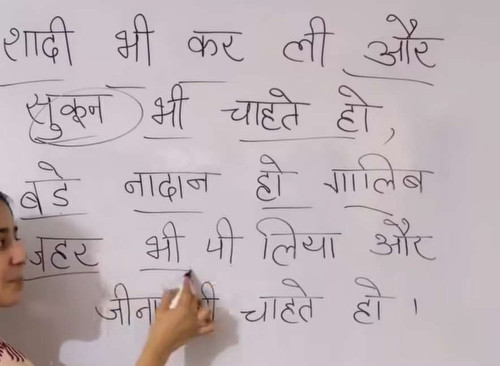 शादी भी कर ली और
सुकून भी चाहते हो,
बडे नादान हो गालिब
जहर भी पी लिया और
जीना भी चाहते हो ।